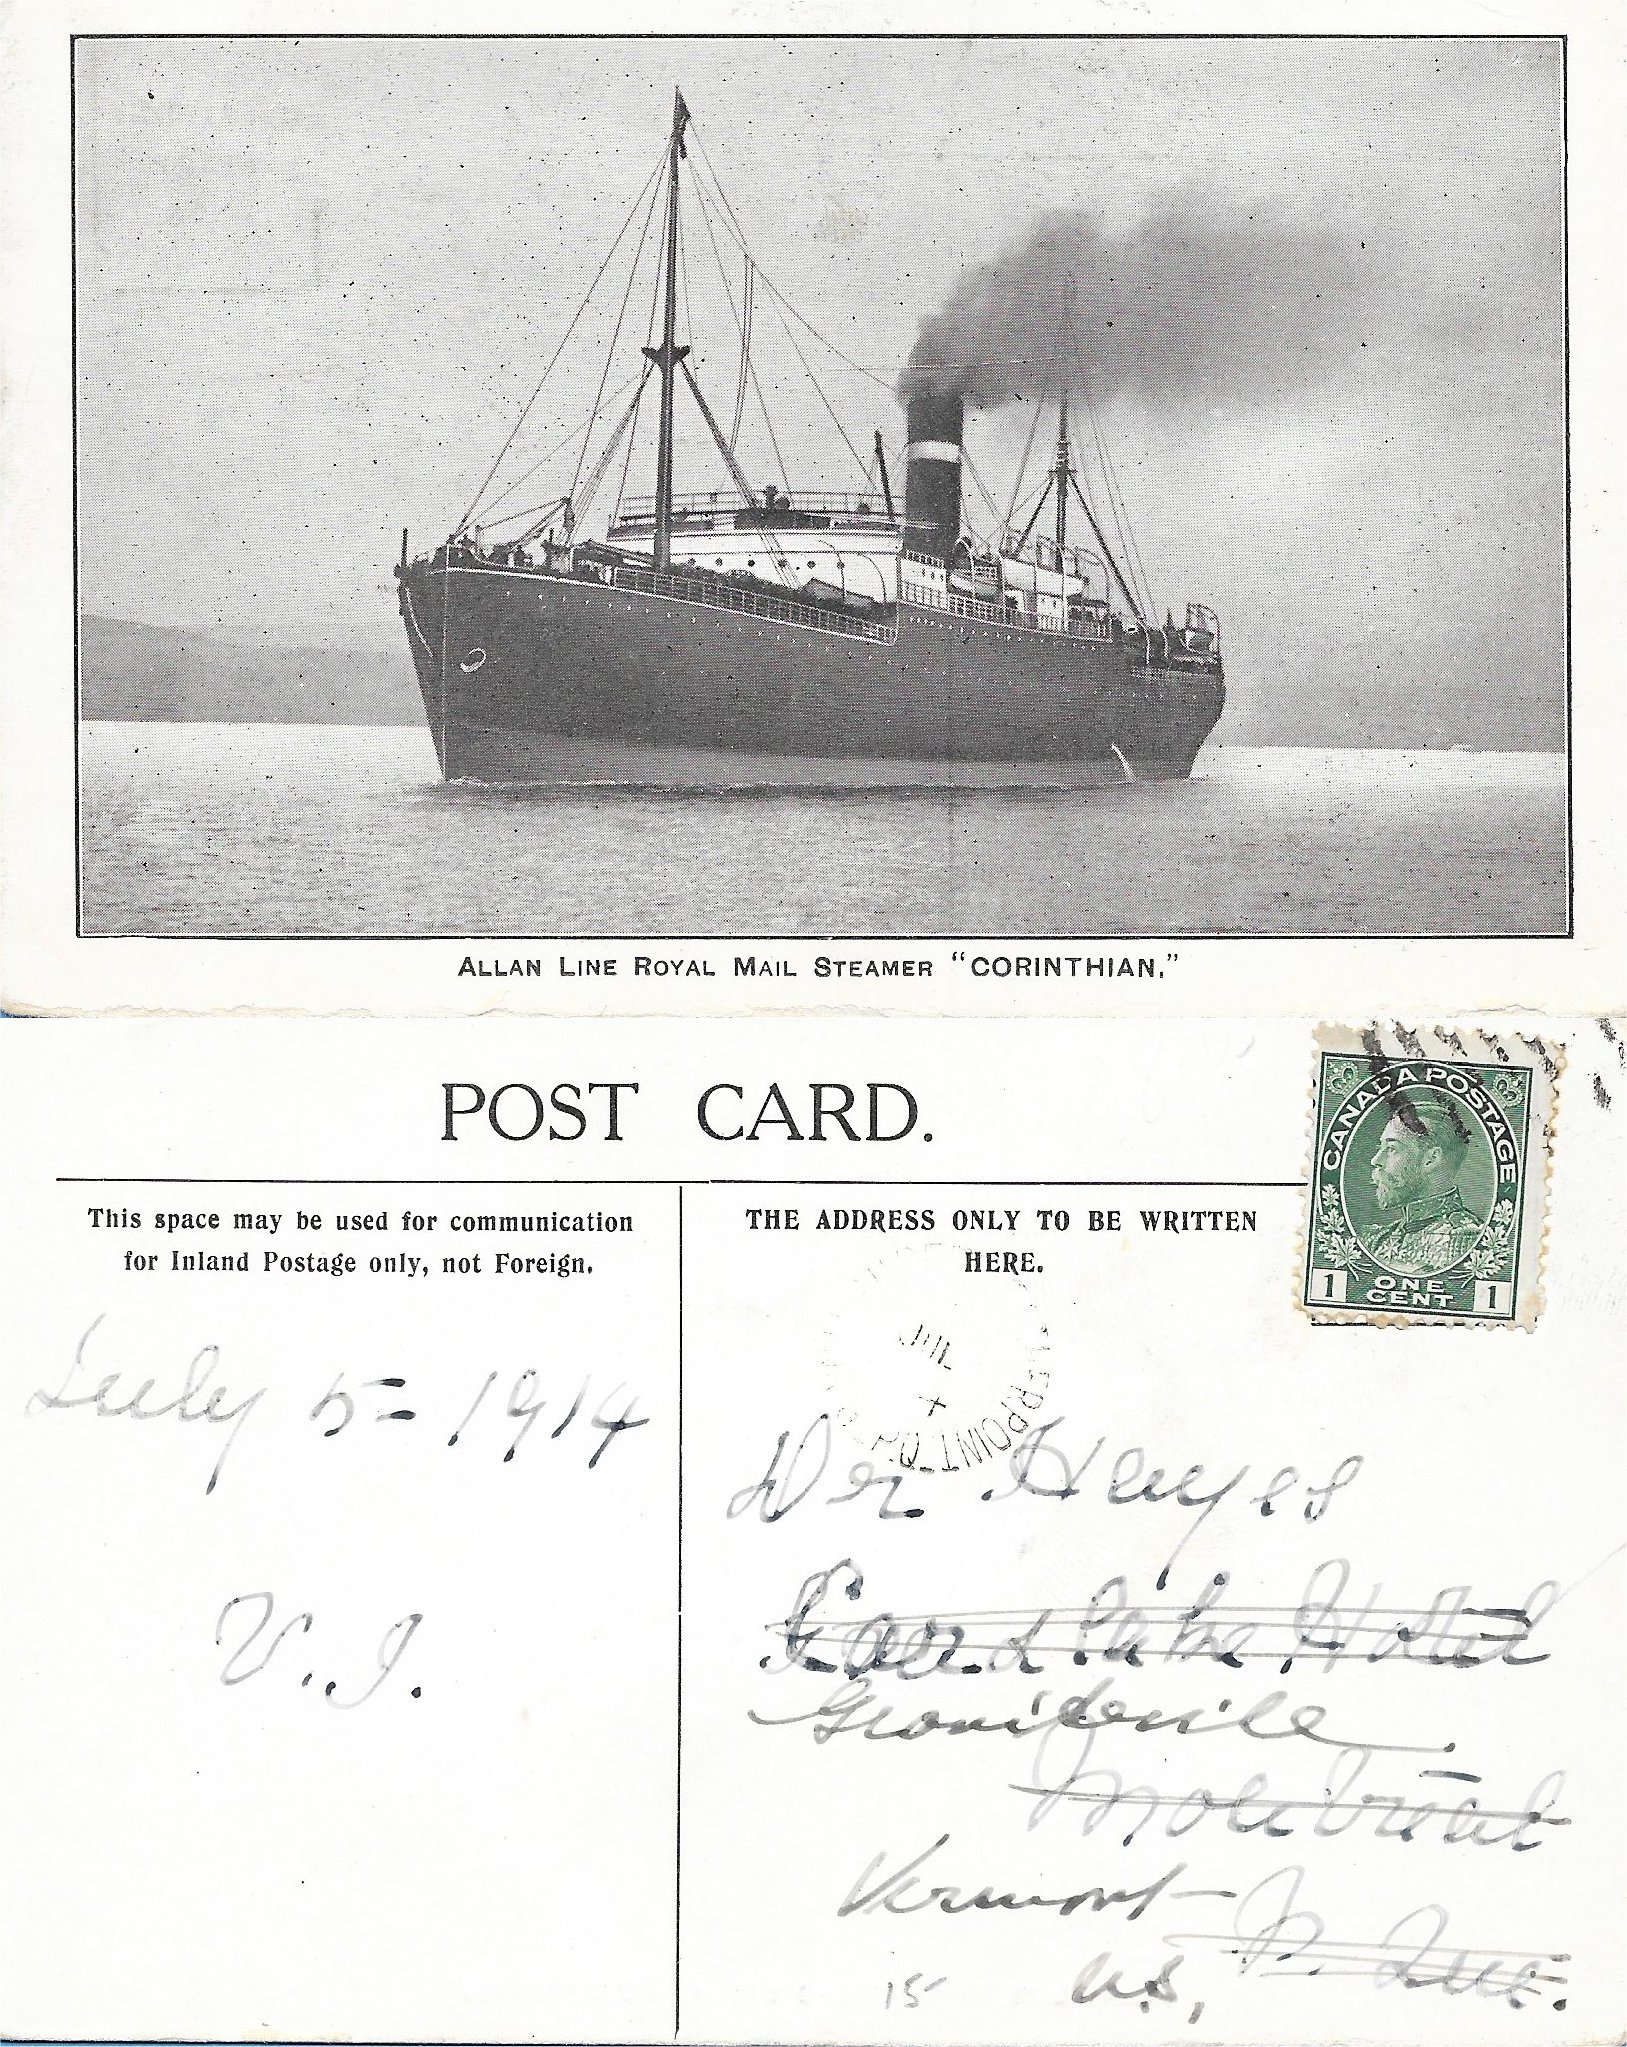 ALLAN LINE ROYAL MAIL STEAMER "CORINTHIAN."
POST CARD.
This space may be used for communication
for Inland Postage only, not Foreign.
THE ADDRESS ONLY TO BE WRITTEN
HERE.
CANADA POSTAGE
1 ONE CENT 1
JUL
X
ERPOINT-Q
July 5 - 1914
V.I.
Hayes
Lake Hotel
Vermont -
Que.
U.S.
15